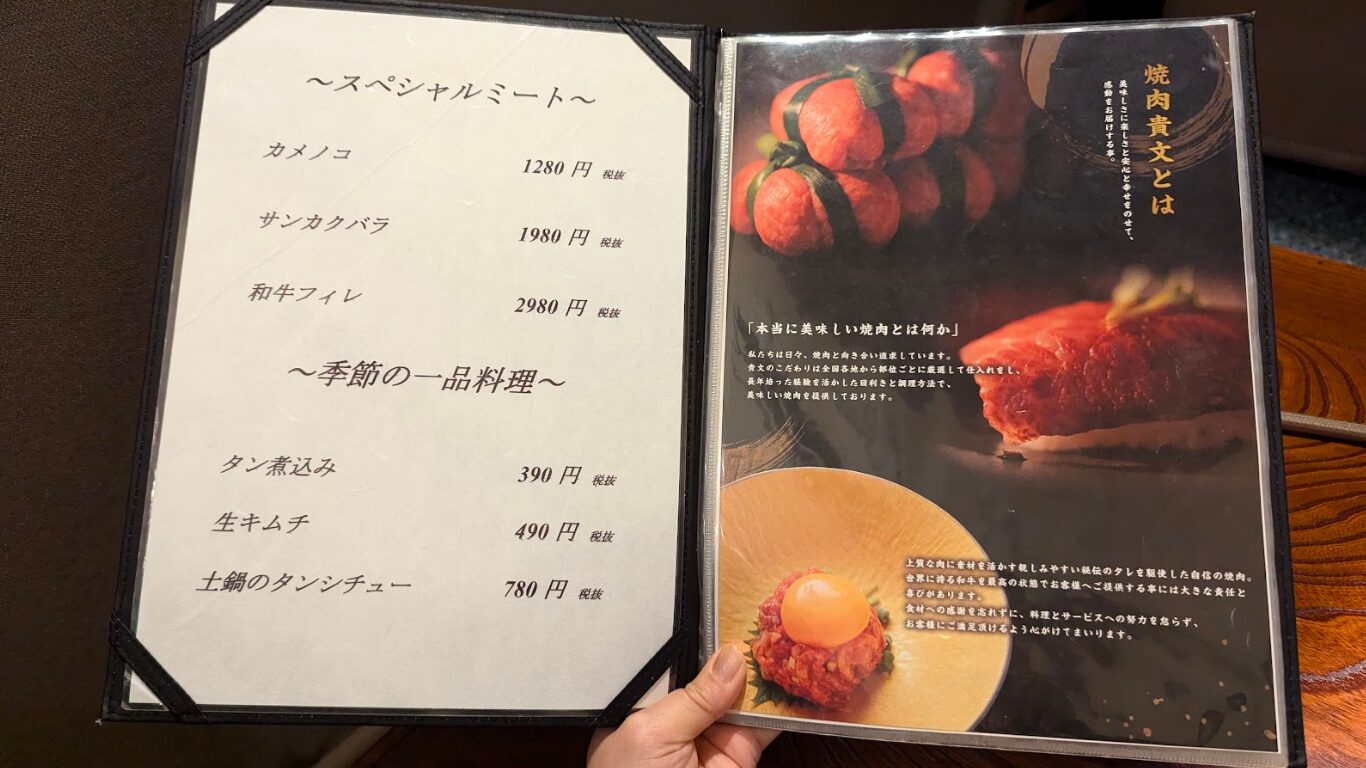 ～スペシャルミート～
カメノコ 1280 円 税抜
サンカクバラ 1980 円 税抜
和牛フィレ 2980 円 税抜
～季節の一品料理～
タン煮込み 390 円 税抜
生キムチ 490 円 税抜
土鍋のタンシチュー 780 円 税抜
焼肉貴文とは
美味しさに楽しさと安心と幸せをのせて、
感動をお届けする事。
「本当に美味しい焼肉とは何か」
私たちは日々、焼肉と向き合い追求しています。
貴文のこだわりは全国各地から部位ごとに厳選して仕入れをし、
長年培った経験を活かした目利きと調理方法で、
美味しい焼肉を提供しております。
上質な肉に素材を活かす親しみやすい秘伝のタレを駆使した自信の焼肉。
世界に誇る和牛を最高の状態でお客様へご提供する事には大きな責任と
喜びがあります。
食材への感謝を忘れずに、料理とサービスへの努力を怠らず、
お客様にご満足頂けるよう心がけてまいります。